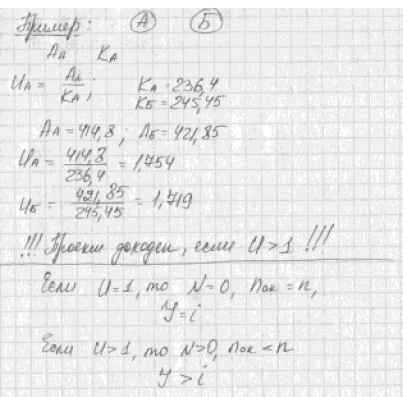 Пример: А Б
Aд KА
UА = Aд / KА; KА = 236,4
KБ = 245,45
AА = 414,8; AБ = 421,85
UА = 414,8 / 236,4 = 1,754
UБ = 421,85 / 245,45 = 1,719
!!! Проект доходен, если U > 1 !!!
Если U = 1, то N = 0, nок = n,
Y = i
Если U > 1, то N > 0, nок < n
Y > i